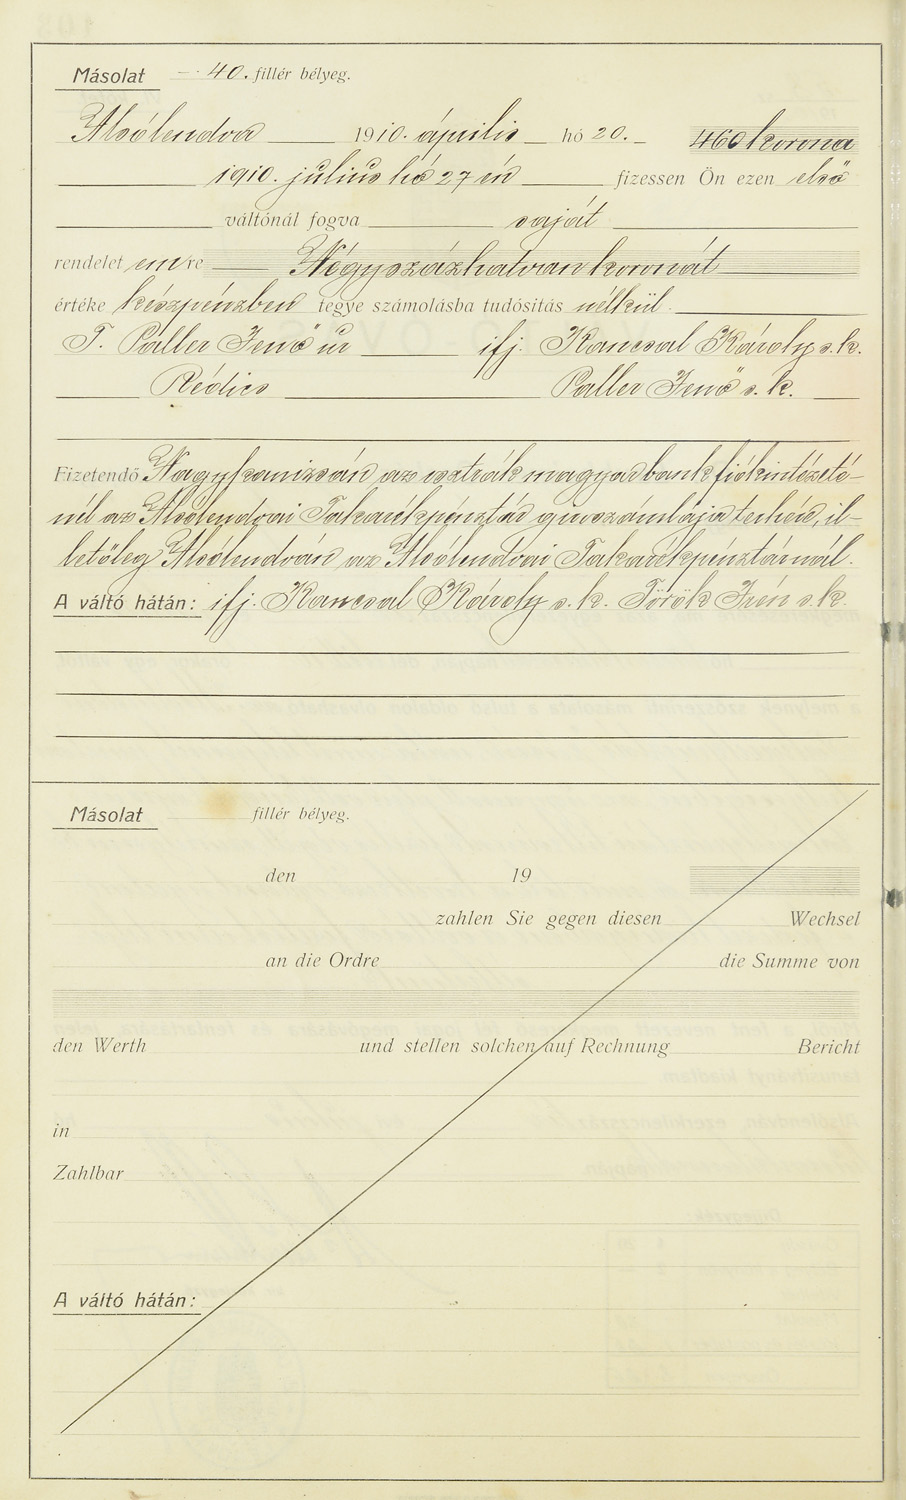 Másolat — 40. fillér bélyeg.
Alsólendva 1910. április hó 20. 460 korona
1910. julius hó 27 én fizessen Ön ezen első
váltónál fogva saját
rendelet emre Négyszázhatvan koronát
értéke készpénzben tegye számolásba tudósítás nélkül.
T. Paller Jenő úr ifj. Kancsal Károly s.k.
Rédics Paller Jenő s.k.
Fizetendő Nagykanizsán az osztrák magyar bank fiókintézeté-
nél az Alsólendvai Takarékpénztár girószámlája terhére, il-
letőleg Alsólendván az Alsólendvai Takarékpénztárnál.
A váltó hátán: ifj. Kancsal Károly s.k. Török Irén s.k.
Másolat fillér bélyeg.
den 19
zahlen Sie gegen diesen Wechsel
an die Ordre die Summe von
den Werth und stellen solchen auf Rechnung Bericht
in
Zahlbar
A váltó hátán: